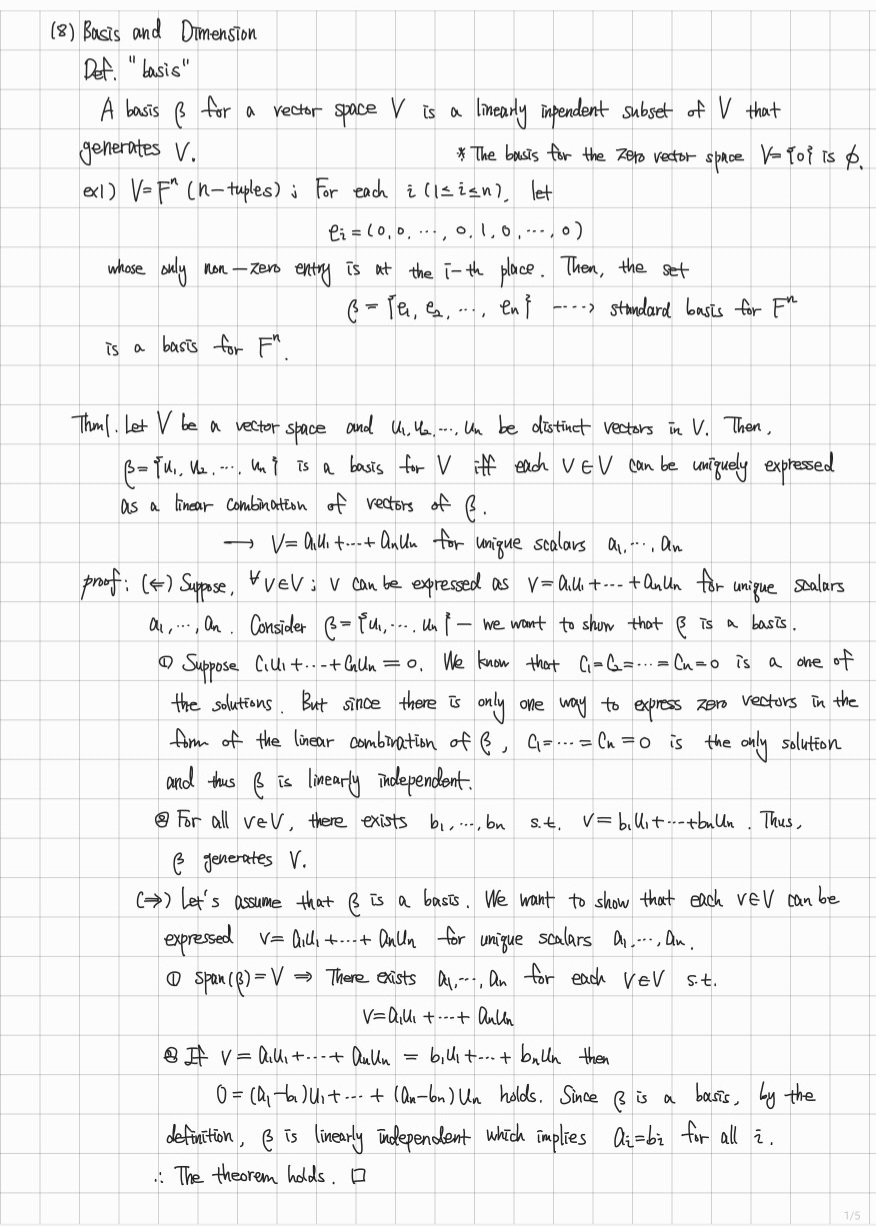 (8) Basis and Dimension
Def. "basis"
A basis β for a vector space V is a linearly inpendent subset of V that
generates V.
* The basis for the zero vector space V={0} is ϕ.
ex1) V=Fⁿ (n-tuples) ; For each i (1≤i≤n), let
eᵢ=(0,0,⋯,0,1,0,⋯,0)
whose only non-zero entry is at the i-th place. Then, the set
β={e₁, e₂, ⋯, eₙ} ----> standard basis for Fⁿ
is a basis for Fⁿ.
Thm1. Let V be a vector space and u₁,u₂,⋯,uₙ be distinct vectors in V. Then,
β={u₁, u₂, ⋯, uₙ} is a basis for V iff each v∈V can be uniquely expressed
as a linear combination of vectors of β.
⟶ v=a₁u₁+⋯+aₙuₙ for unique scalars a₁,⋯,aₙ
proof: (⇐) Suppose, ∀v∈V ; v can be expressed as v=a₁u₁+⋯+aₙuₙ for unique scalars
a₁,⋯,aₙ. Consider β={u₁,⋯,uₙ} – we want to show that β is a basis.
① Suppose c₁u₁+⋯+cₙuₙ=0. We know that c₁=c₂=⋯=cₙ=0 is a one of
the solutions. But since there is only one way to express zero vectors in the
form of the linear combination of β, c₁=⋯=cₙ=0 is the only solution
and thus β is linearly independent.
② For all v∈V, there exists b₁,⋯,bₙ s.t. v=b₁u₁+⋯+bₙuₙ. Thus,
β generates V.
(⇒) Let's assume that β is a basis. We want to show that each v∈V can be
expressed v=a₁u₁+⋯+aₙuₙ for unique scalars a₁,⋯,aₙ.
① span(β)=V ⇒ There exists a₁,⋯,aₙ for each v∈V s.t.
v=a₁u₁+⋯+aₙuₙ
② If v=a₁u₁+⋯+aₙuₙ = b₁u₁+⋯+bₙuₙ then
0=(a₁-b₁)u₁+⋯+(aₙ-bₙ)uₙ holds. Since β is a basis, by the
definition, β is linearly independent which implies aᵢ=bᵢ for all i.
∴ The theorem holds. □
1/5